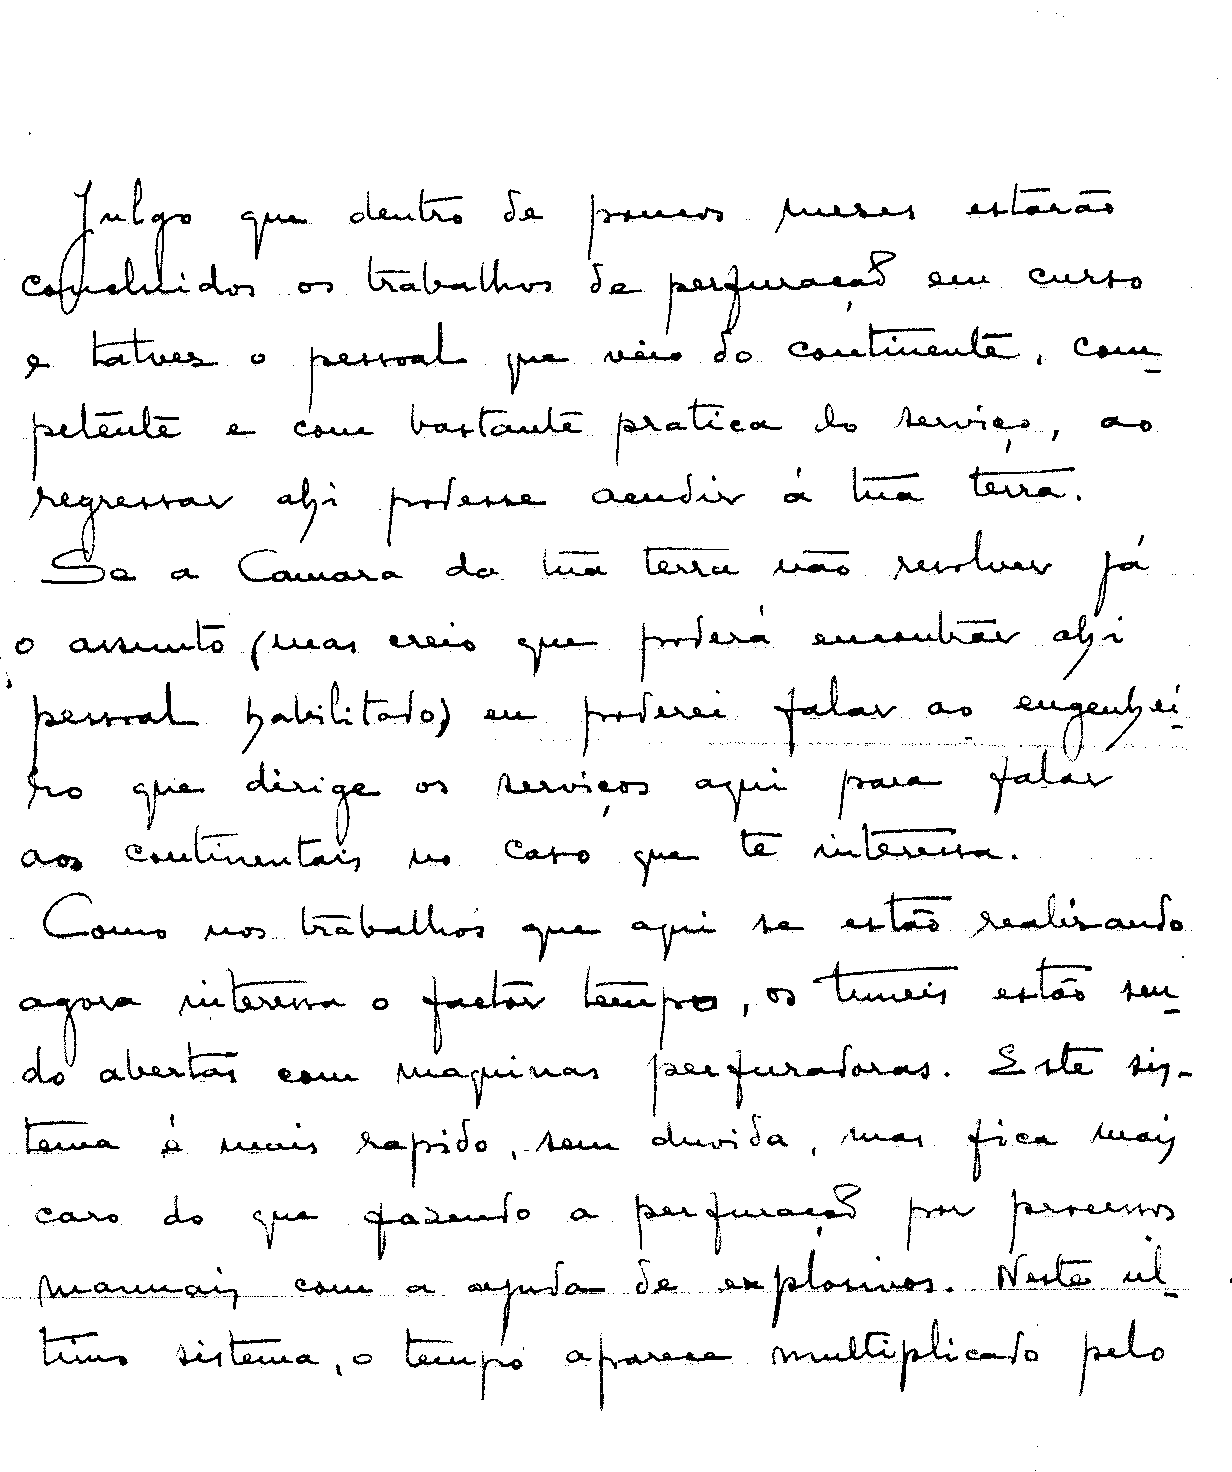 Julgo que dentro de poucos meses estarão
concluidos os trabalhos de perfuração em curso
e talvez o pessoal que veio do continente, com-
petente e com bastante pratica do serviço, ao
regressar ahi podesse acudir á tua terra.
Se a Camara da tua terra não resolver já
o assunto (mas creio que poderá encontrar ahi
pessoal habilitado) eu poderei falar ao engenhei-
ro que dirige os serviços aqui para falar
aos continentais no caso que te interessa.
Como nos trabalhos que aqui se estão realisando
agora interessa o factor tempo, os tuneis estão sen-
do abertos com maquinas perfuradoras. Este sis-
tema é mais rapido, sem duvida, mas fica mais
caro do que fazendo a perfuração por processos
manuais com a ajuda de explosivos. Neste ul-
timo sistema, o tempo aparece multiplicado pelo